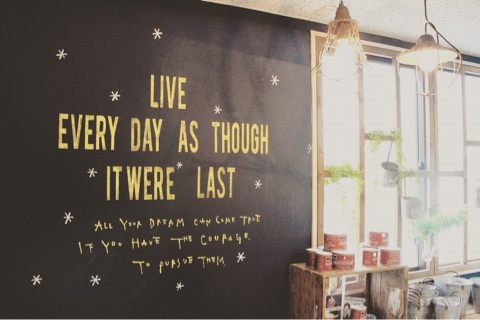 LIVE
EVERY DAY AS THOUGH
IT WERE LAST
ALL YOUR DREAM CAN COME TRUE
IF YOU HAVE THE COURAGE.
TO PURSUE THEM